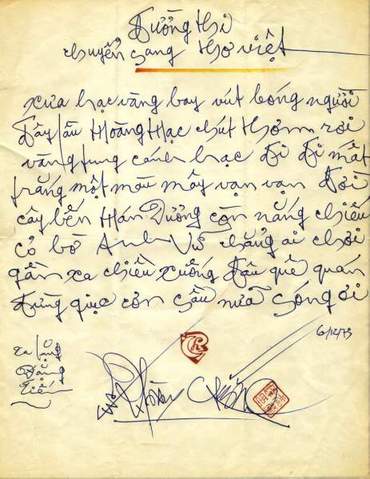 Đường thi
chuyển sang thơ việt
xưa hạc vàng bay vút bóng người
Đây lầu Hoàng Hạc chút thơm rơi
vàng tung cánh hạc đi đi mất
trắng một màu mây vạn vạn đời
cây bến Hán Dương còn nắng chiếu
cỏ bờ Anh Vũ chẳng ai chơi
gần xa chiều xuống đâu quê quán
đừng giục cơn sầu nữa sóng ơi
6/12/73
tặng
Đặng
Tiến
Vũ Hoàng Chương